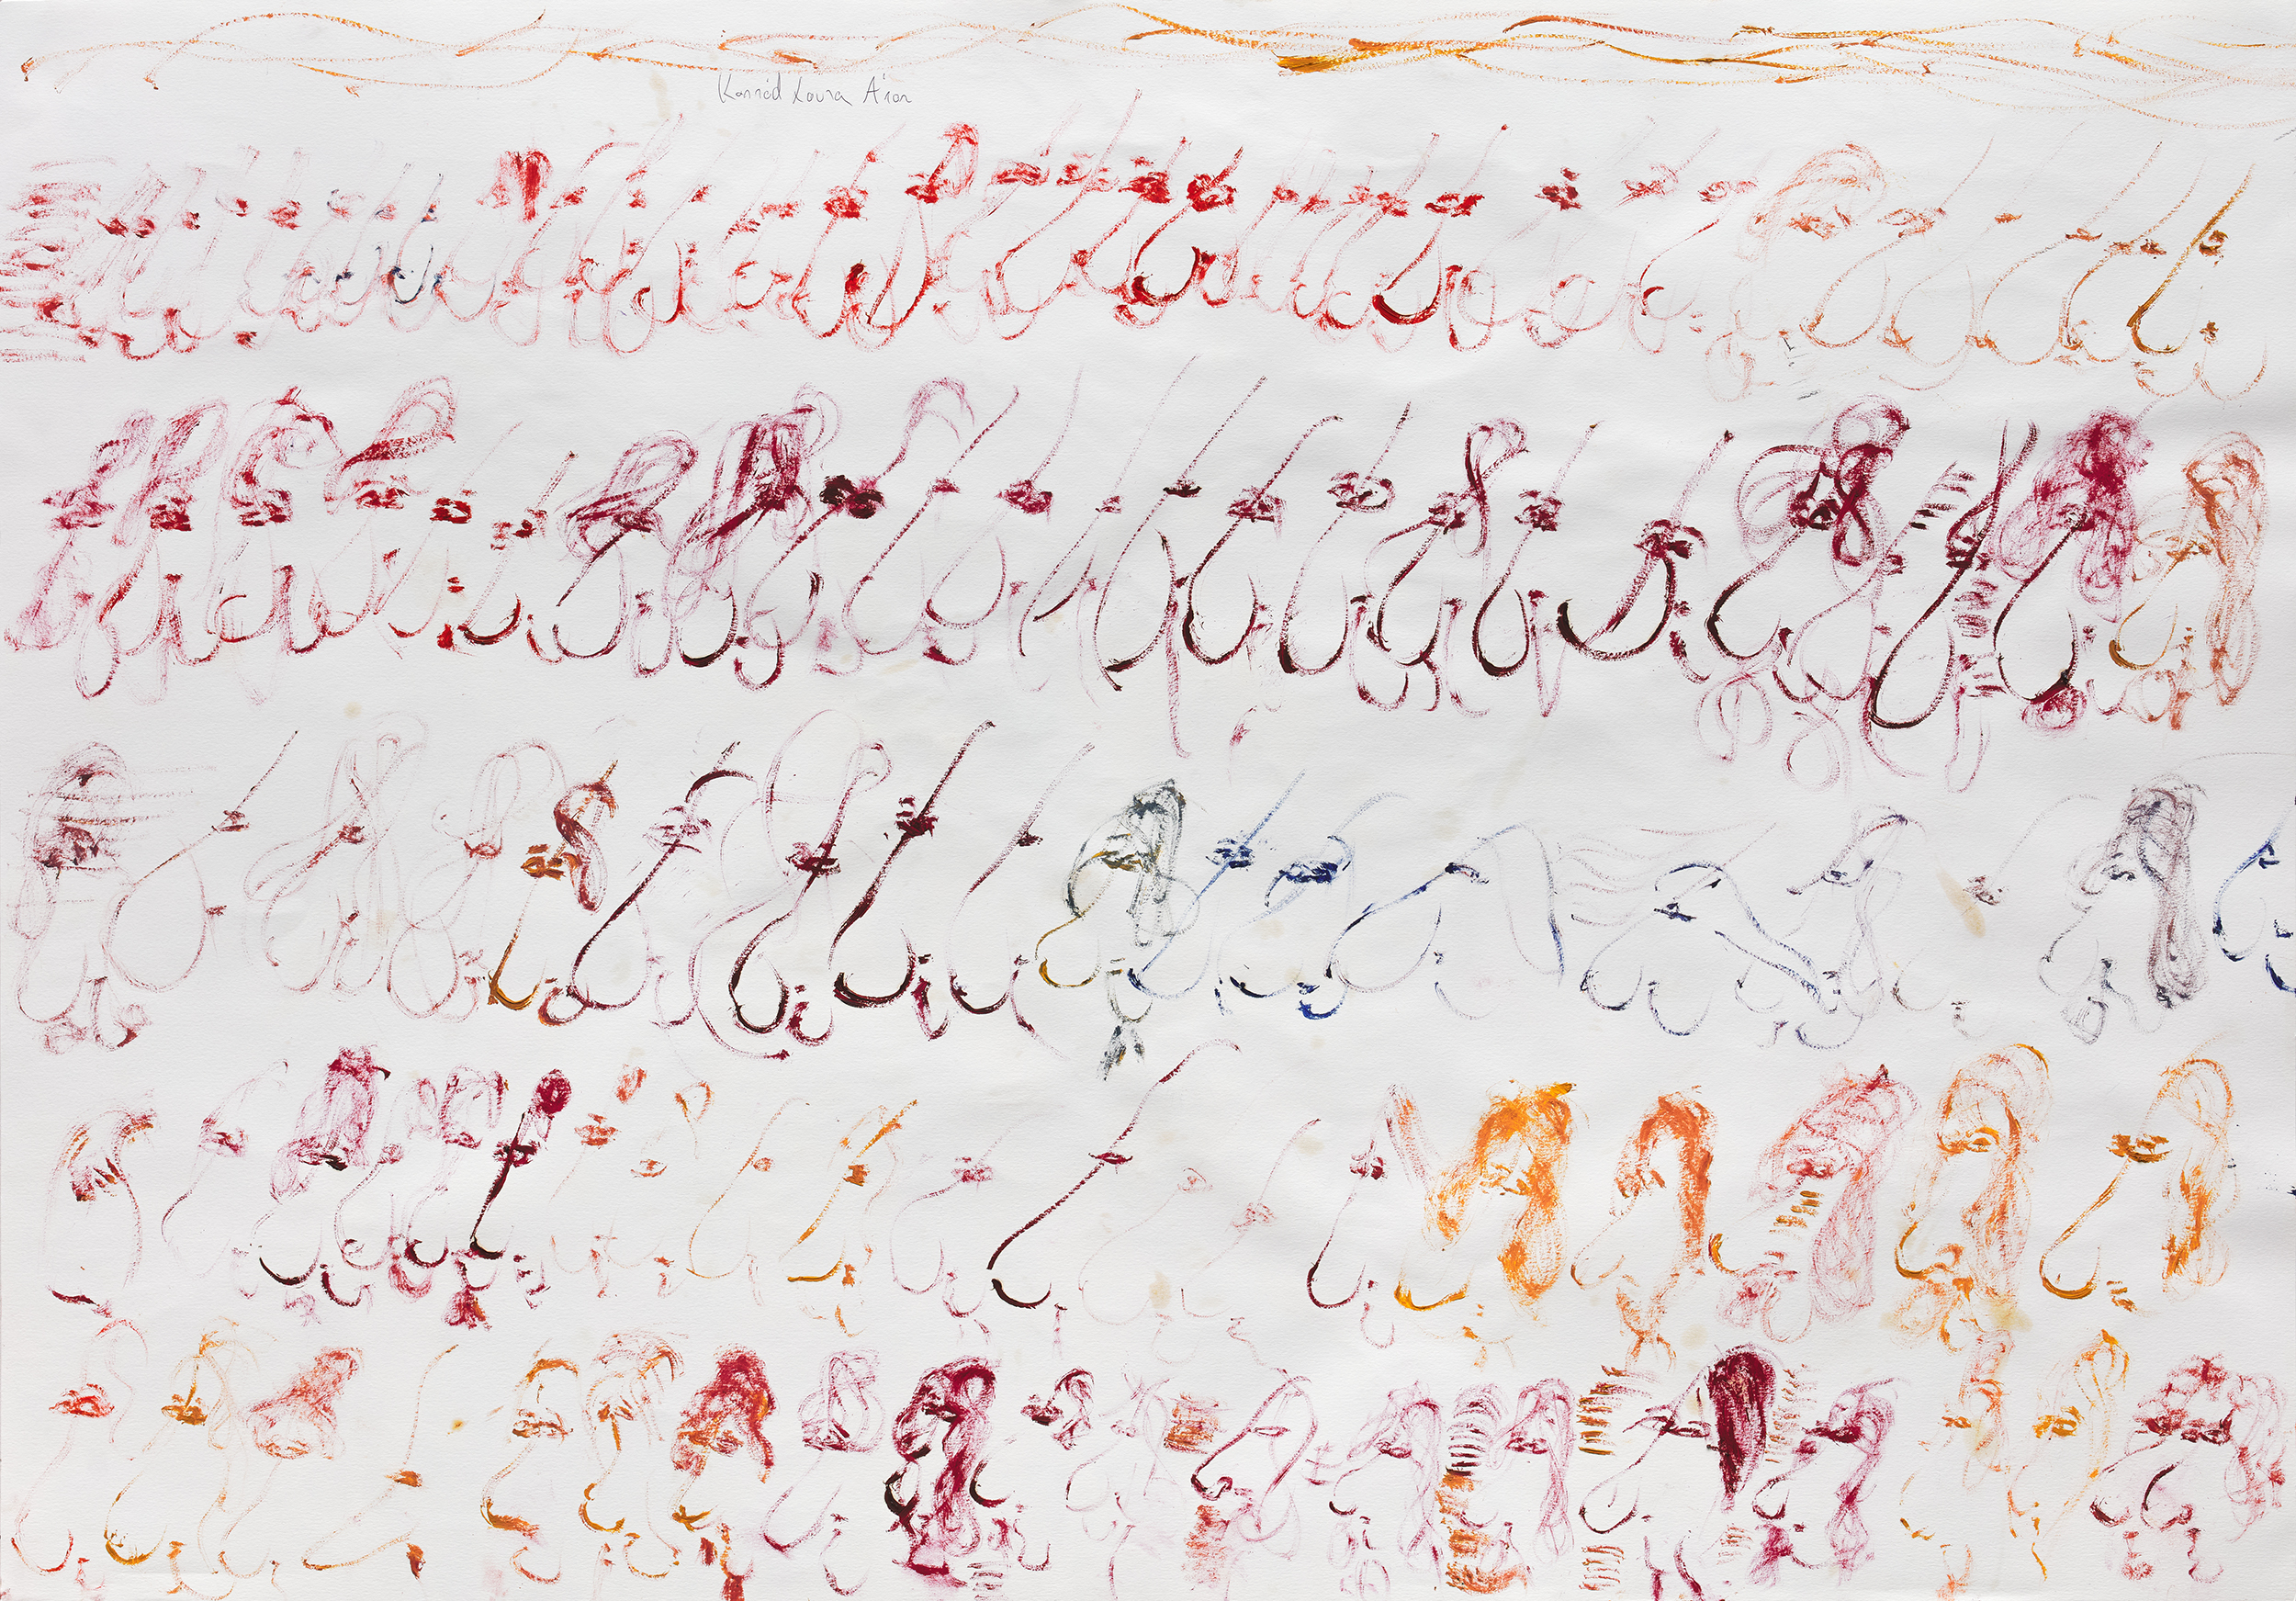 Konrád Laura Áron